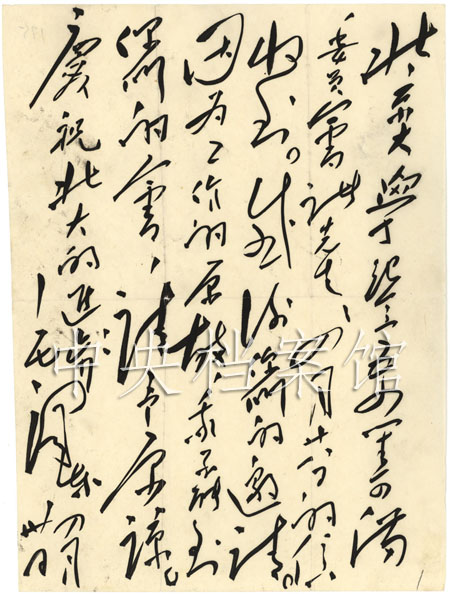 北京大学纪念五四筹备
委员会诸先生：四月廿八日的信
收到。感谢你们的邀请。
因为工作的原故，我不能到
你们的会，请予原谅。
庆祝北大的进步！
毛泽东
四月
卅日
中央档案馆